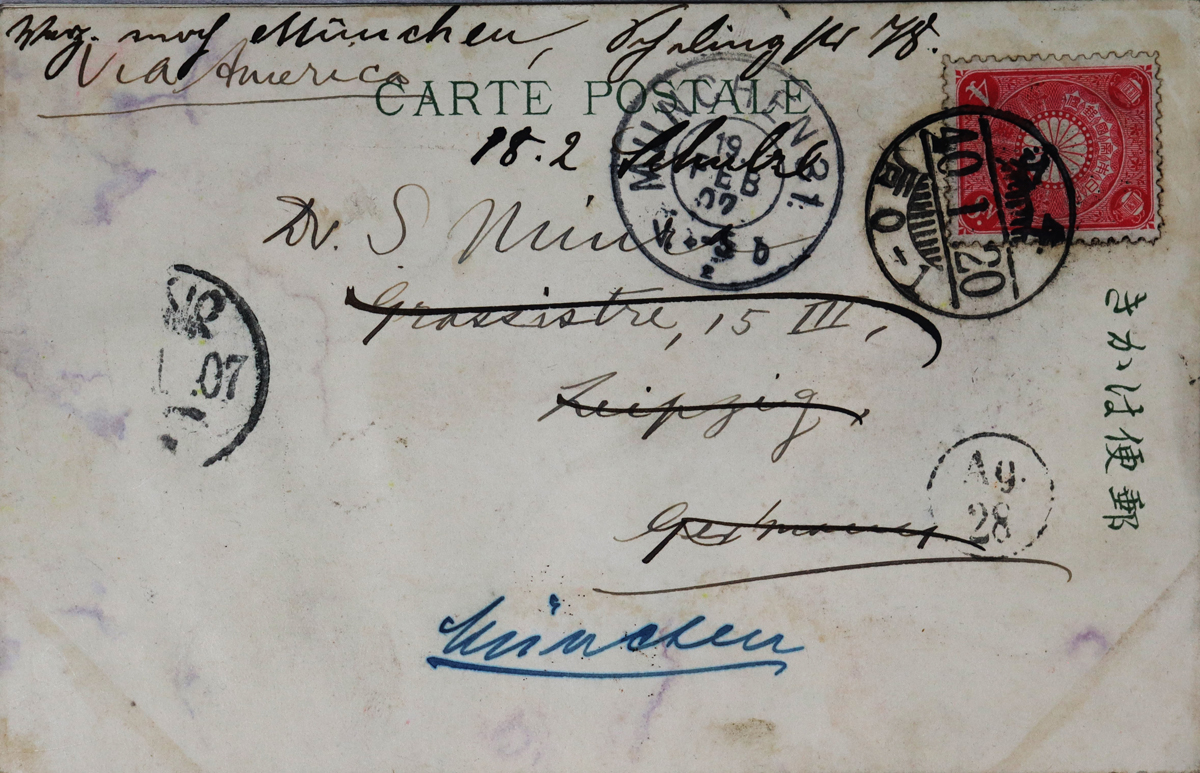 Verz. nach München, Schellingstr 78.
Via America
CARTE POSTALE
18.2 Schulze
MUENCHEN 31.
19
FEB
07
Dr. S.
Grassistre, 15 III,
Leipzig.
Germany
München
40
1
20
0-1
.07
Ag.
28
きかは便郵